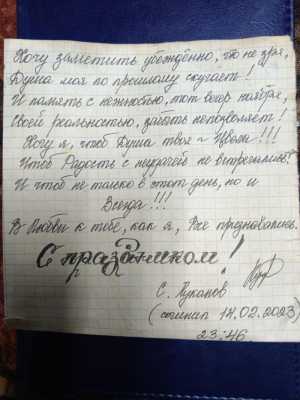 Хочу заметить убеждённо, что не зря,
Душа моя по прошлому скучает!
И память с нежностью, тот вечер ноября,
Своей реальностью, забыть не позволяет!
Хочу я, чтоб Душа твоя - Цвела!!!
Чтоб Радость с неудачей не встречались!
И чтоб не только в этот день, но и
Всегда!!!
В Любви к тебе, как я, Все признавались.
С праздником!
С. Луканов
(сочинал 14.02.2023)
23:46